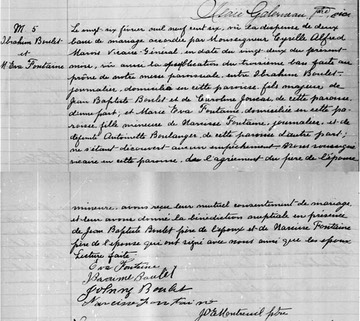 M. 5
Ibrahim Boulet
et
M. Eva Fontaine
Le vingt six février mil neuf cent six, vu la dispense de deux
bans de mariage accordée par Monseigneur Cyrille Alfred
Marois Vicaire Général en date du vingt deux du présent
mois, vu aussi la publication du troisième ban faite au
prône de notre messe paroissiale, entre Ibrahim Boulet
journalier, domicilié en cette paroisse fils majeur de
Jean Baptiste Boulet et de Caroline de cette paroisse
d'une part; et Marie Eva Fontaine domiciliée en cette pa-
roisse fille mineure de Narcisse Fontaine, journalier, et de
défunte Antoinette Boulanger, de cette paroisse d'autre part;
ne s'étant découvert aucun empêchement, Nous soussigné
vicaire en cette paroisse, du l'agrément du père de l'épouse
mineure, avons reçu leur mutuel consentement de mariage
et leur avons donné la bénédiction nuptiale en présence
de Jean Baptiste Boulet père de l'époux et de Narcisse Fontaine
père de l'épouse qui ont signé avec nous ainsi que les époux
Lecture faite.
Eva Fontaine
Boulet
Johnny Boulet
Narcisse Fontaine
Montreuil ptre